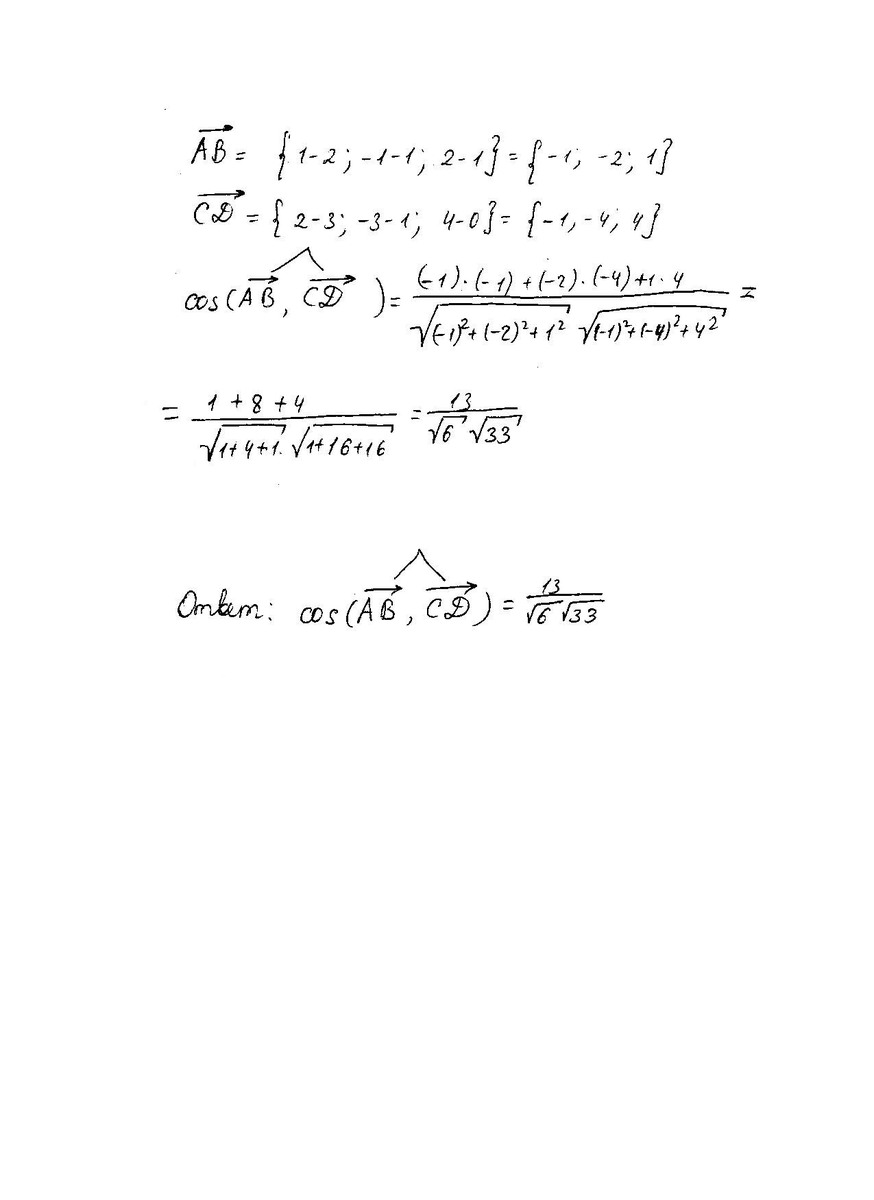 AB = {1-2; -1-1; 2-1} = {-1; -2; 1}
CD = {2-3; -3-1; 4-0} = {-1, -4; 4}
cos(AB, CD) = ((-1)·(-1) + (-2)·(-4) + 1·4) / (√((-1)²+(-2)²+1²) √((-1)²+(-4)²+4²)) =
= (1 + 8 + 4) / (√(1+4+1) · √(1+16+16)) = 13 / (√6 √33)
Ответ: cos(AB, CD) = 13 / (√6 √33)